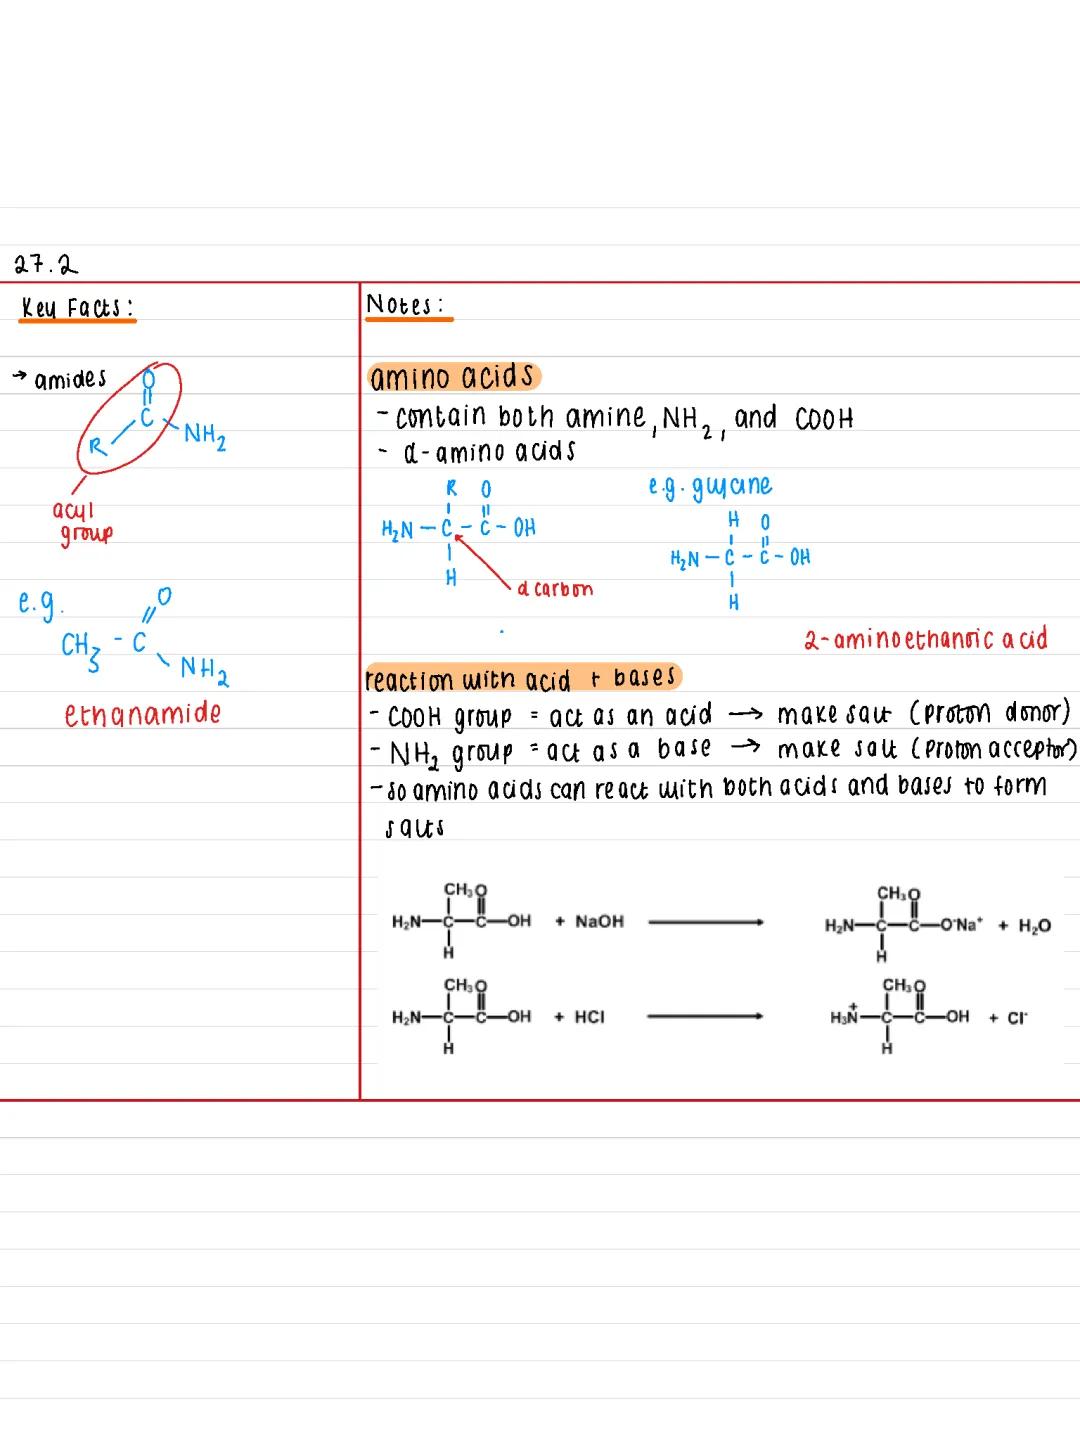 27.2
Key Facts:
→ amides
O
||
C
R
NH2
acyl
group
e.g.
O
//
CH3 - C
NH2
ethanamide
Notes:
amino acids
- contain both amine, NH2, and COOH
- α-amino acids
R O
H2N — C - C - OH
H
α carbon
e.g. glycine
H O
H2N — C - C - OH
H
2-aminoethanoic acid
reaction with acid + bases
- COOH group = act as an acid → make salt (proton donor)
- NH2 group = act as a base → make salt (proton acceptor)
- so amino acids can react with both acids and bases to form
salts
CH3 O
H2N—C—C—OH + NaOH ⟶ H2N—C—C—O-Na+ + H2O
H
CH3 O
H
CH3 O
H2N—C—C—OH + HCl ⟶ H3N+—C—C—OH + Cl-
H
CH3 O
H